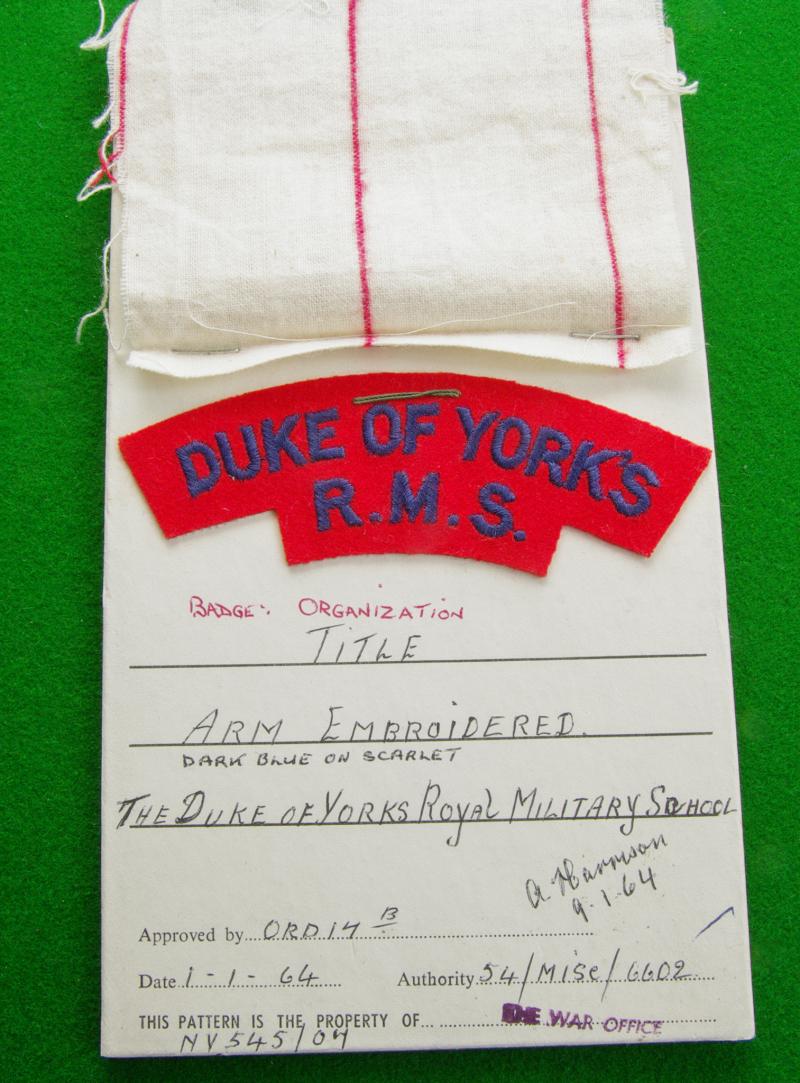 DUKE OF YORK'S
R.M.S.
BADGE: ORGANIZATION
TITLE
ARM EMBROIDERED.
DARK BLUE ON SCARLET
THE DUKE OF YORKS ROYAL MILITARY SCHOOL
A. Harrison
9.1.64
Approved by ORD 17 B
Date 1-1-64 Authority 54/MISC/6602
THIS PATTERN IS THE PROPERTY OF THE WAR OFFICE
NV 545/04